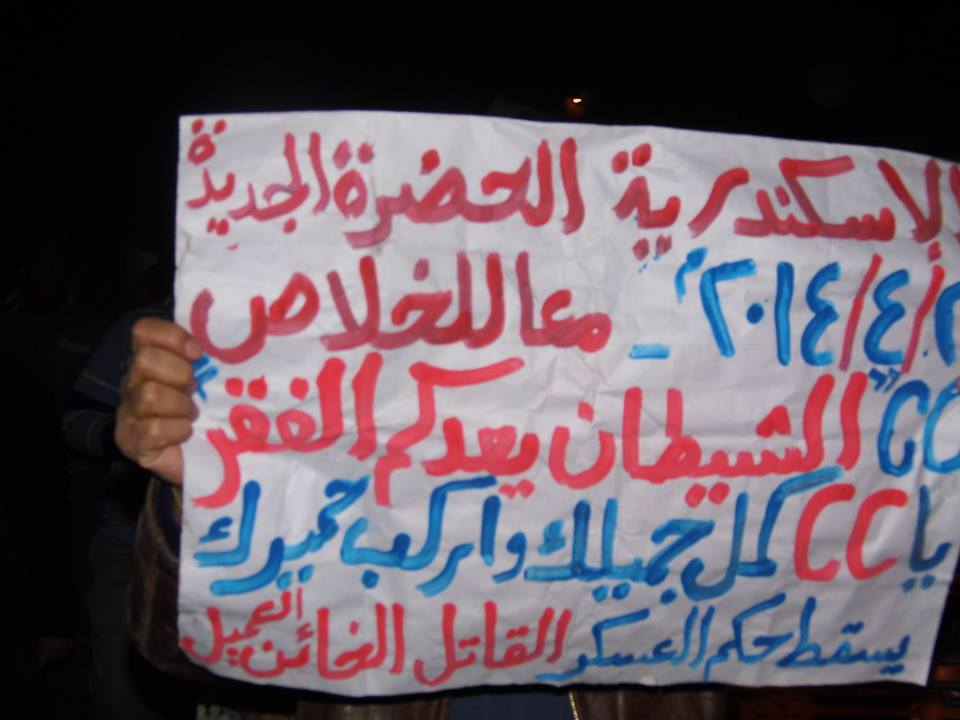 الاسكندرية الحضرة الجديدة
/٤/٢٠١٤م - معا للخلاص
CC "الشيطان يعدكم الفقر"
يا CC كمل جميلك واركب حميرك
يسقط حكم العسكر القاتل الخائن العميل